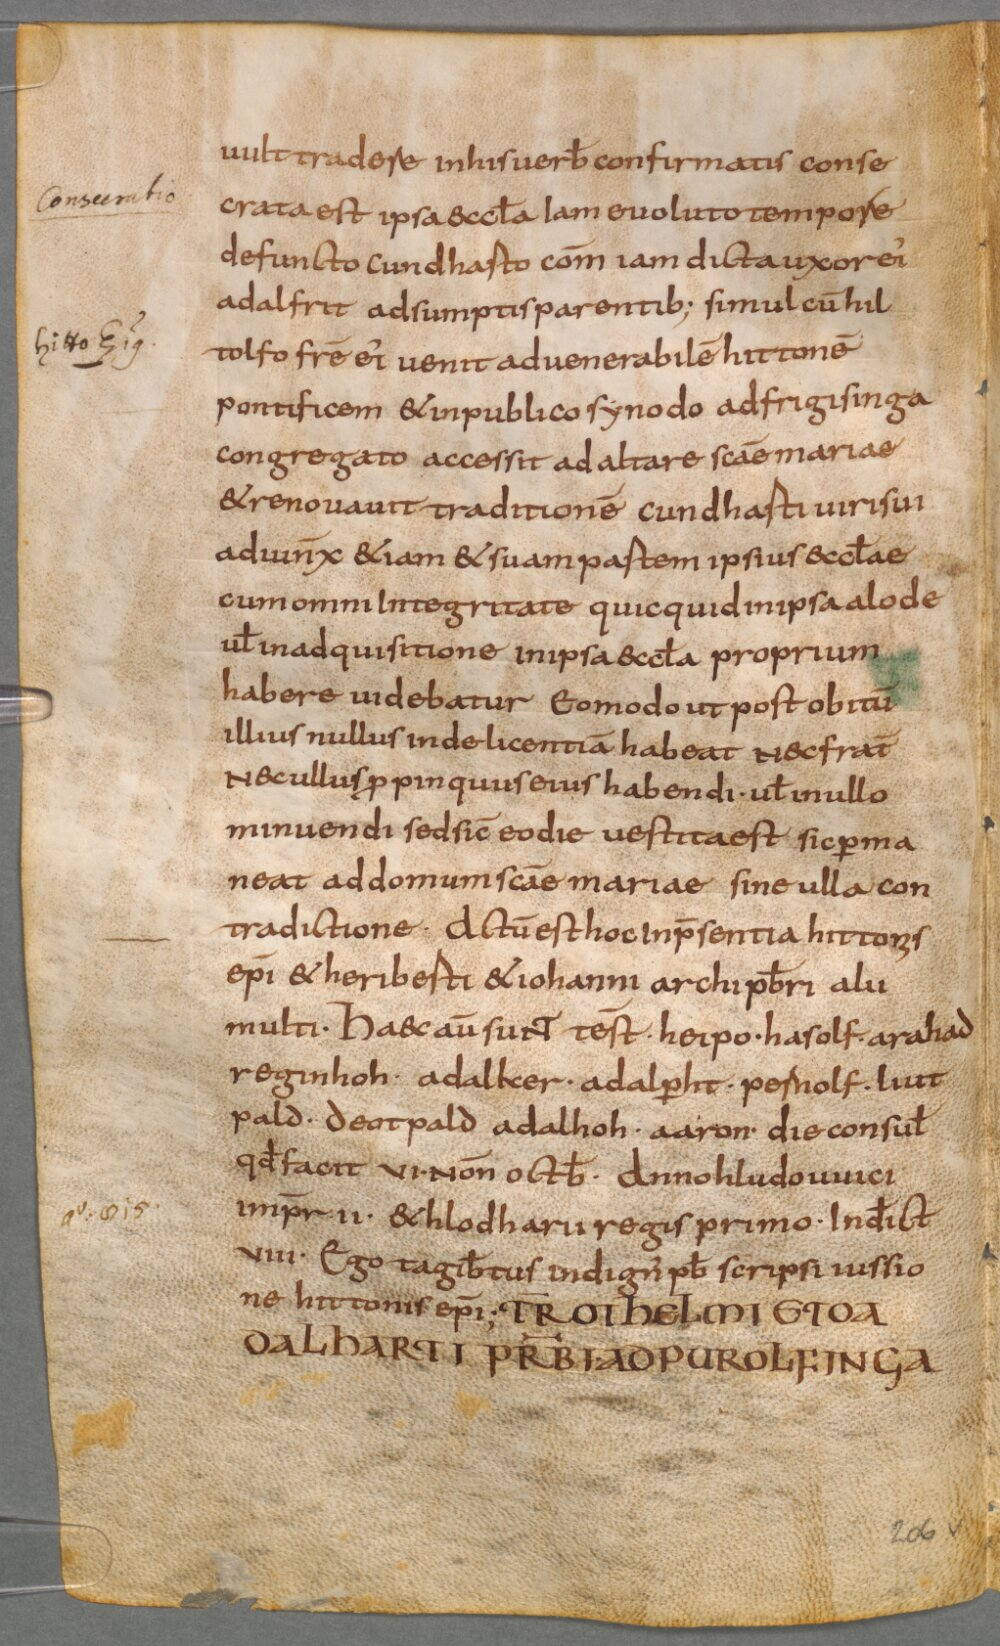 uult tradere inhisuerb̄ confirmatis conse
Consecratio
crata est ipsa &ccƚa Iam euoluto tempore
defuncto cundhasto cōm iam dicta uxor ei
adalfrit adsumptis parentib; simul cū hil
hitto Eṕs.
tolfo frē ei uenit aduenerabilē hittonē
pontificem & inpublico synodo adfrigisinga
congregato accessit ad altare scāe mariae
& renouauit traditionē cundhasti uiri sui
adiunx̄ & iam & suam partem ipsius &ccƚae
cum omni Integritate quicquid inipsa alode
uƚ inadquisitione inipsa &ccƚa proprium
habere uidebatur Eo modo ut post obitū
illius nullus inde licentiā habeat nec frat̄
nec ullus ꝓpinquus eius habendi · uƚ inullo
minuendi sed sic̄ eodie uestita est sic ꝑma
neat addomum scāe mariae sine ulla con
tradictione · Actū est hoc In p̄sentia hittonis
ep̄i & heriberti & iohanni archi pb̄ri alii
multi · Haec aū sunt tēst · heipo · hasolf · arahad
reginhoh · adalker · adalꝑht · pernolf · liut
pald · deotpald adalhoh · aaron · die consuƚ
qd̄ facit VI · Nōn octb̄ · Anno hludouuici
aº. 815.
imp̄r II · & hlodharii regis primo · Ind̄ict
VIII · Ego tagib̄tus indigṅ pb̄ scripsi iussio
ne hittonis ep̄i; TR̄ OTHELMI ETOA
DALHARTI PR̄BI AD PUROLFINGA
206 v